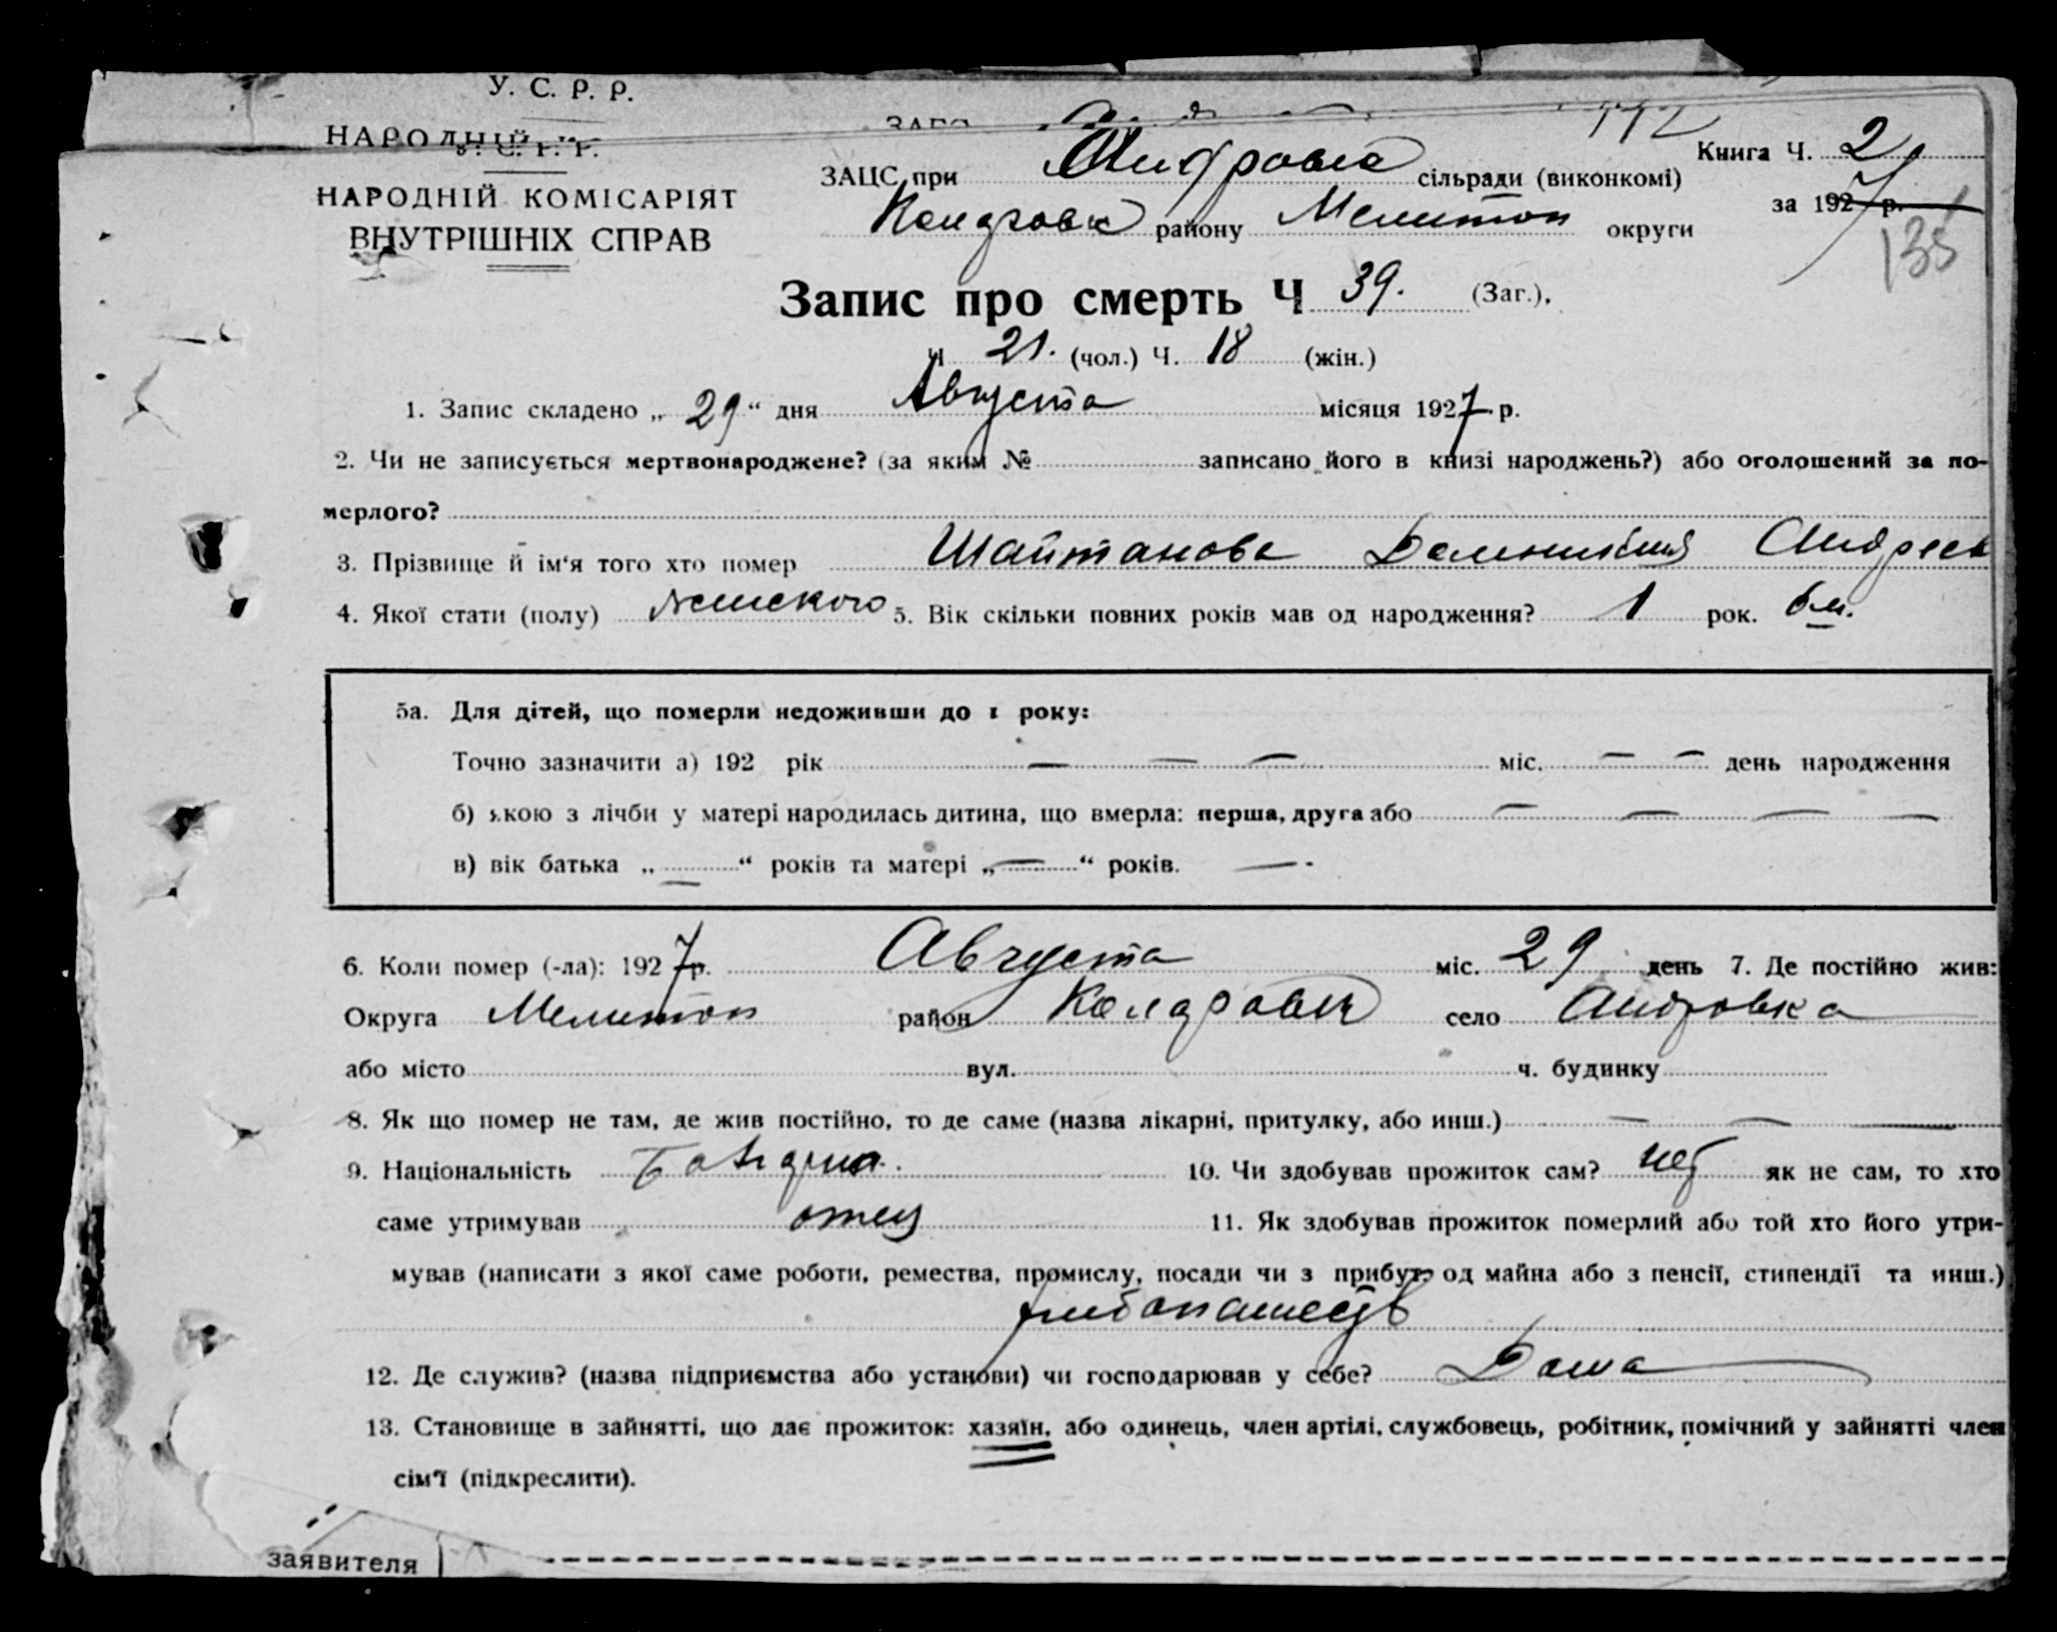 У. С. Р. Р.
НАРОДНІЙ
НАРОДНІЙ КОМІСАРІЯТ
ВНУТРІШНІХ СПРАВ
Книга Ч. 2
ЗАЦС при сільради (виконкомі)
за 1927 р.
району Мелитоп округи
135
Запис про смерть Ч 39. (Заг.),
Ч 21. (чол.) Ч. 18 (жін.)
1. Запис складено „ 29 “ дня Августа місяця 1927 р.
2. Чи не записується мертвонароджене? (за яким № записано його в книзі народжень?) або оголошений за по-
мерлого?
3. Прізвище й ім‘я того хто помер Шайтанова
4. Якої стати (полу) женского 5. Вік скільки повних років мав од народження? 1 рок. 6 м.
5а. Для дітей, що померли недоживши до 1 року:
Точно зазначити а) 192 рік — — — міс. — — день народження
б) якою з лічби у матері народилась дитина, що вмерла: перша, друга або — — — —
в) вік батька „ — “ років та матері „ — “ років. —
6. Коли помер (-ла): 1927 р. Августа міс. 29 день 7. Де постійно жив:
Округа Мелитоп район село Андровка
або місто вул. ч. будинку
8. Як що помер не там, де жив постійно, то де саме (назва лікарні, притулку, або инш.) — — —
9. Національність 10. Чи здобував прожиток сам? нет як не сам, то хто
саме утримував отец 11. Як здобував прожиток померлий або той хто його утри-
мував (написати з якої саме роботи, ремества, промислу, посади чи з прибут. од майна або з пенсії, стипендії та инш.)
хлебопашець
12. Де служив? (назва підприємства або установи) чи господарював у себе? Дома
13. Становище в зайнятті, що дає прожиток: хазяїн, або одинець, член артілі, службовець, робітник, помічний у зайнятті член
сім‘ї (підкреслити).
заявителя